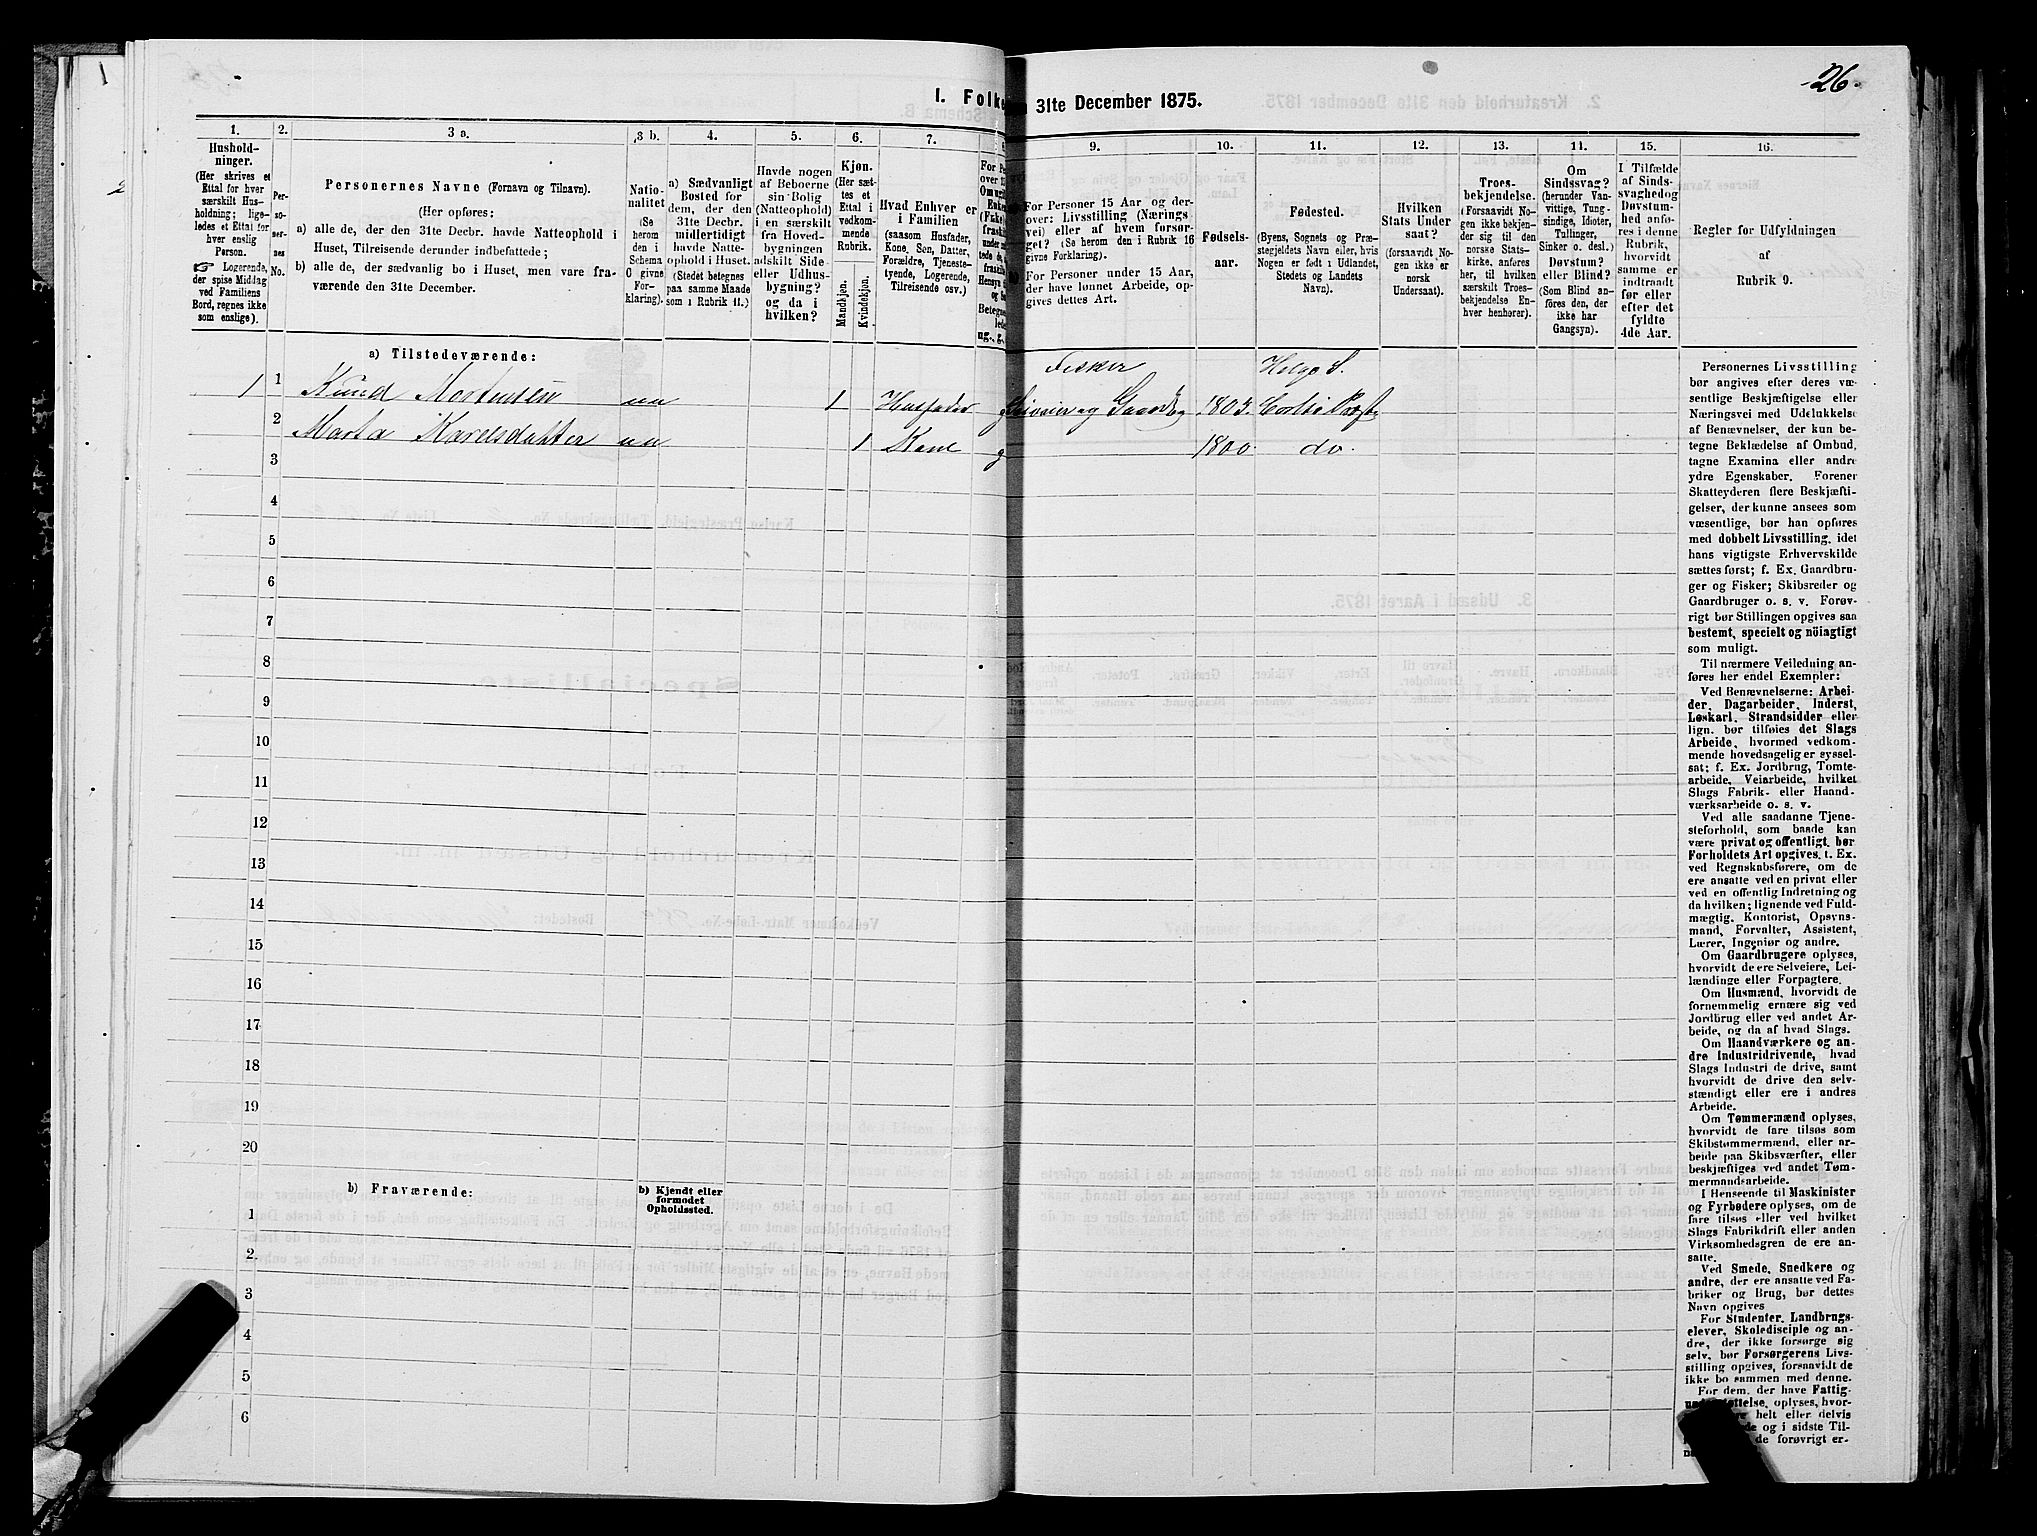 -26-
I. Folke
31te December 1875.
1.
2.
3 a.
3 b.
4.
5.
6.
7.
9.
10.
11.
12.
13.
11.
15.
16.
Hushold-
ninger.
(Her skrives et
Ettal for hver
særskilt Hus-
holdning; lige-
ledes et Ettal for
hver enslig
Person.
Logerende,
der spise Middag
ved Familiens
Bord, regnes ikke
som enslige).
Per-
so-
ner-
nes
No.
Personernes Navne (Fornavn og Tilnavn).
(Her opføres:
a) alle de, der den 31te Decbr. havde Natteophold i
Huset, Tilreisende derunder indbefattede;
b) alle de, der sædvanlig bo i Huset, men vare fra-
værende den 31te December.
Natio-
nalitet
(Se
herom
den i
Schema
C givne
For-
klaring).
a) Sædvanligt
Bosted for
dem, der den
31te Decbr.
midlertidigt
havde Natte-
ophold i Huset.
(Stedet betegnes
paa samme Maade
som i Rubrik 11.)
Havde nogen
af Beboerne
sin Bolig
(Natteophold)
i en særskilt
fra Hoved-
bygningen
adskilt Side-
eller Udhus-
bygning?
og da i
hvilken?
Kjøn.
(Her sæt-
tes et
Ettal i
vedkom-
mende
Rubrik.
Mandkjøn.
Kvindekjøn.
Hvad Enhver er
i Familien
(saasom Husfader,
Kone, Søn, Datter,
Forældre, Tjeneste-
tyende, Logerende,
Tilreisende osv.)
For Personer 15 Aar og der-
over: Livsstilling (Nærings
vei) eller af hvem forsør-
get? (Se herom i Rubrik 16
givne Forklaring).
For Personer under 15 Aar,
der have lønnet Arbeide, op-
gives dettes Art.
Fødsels-
aar.
Fødested.
(Byens, Sognets og Præ-
stegjeldets Navn eller, hvis
Nogen er født i Udlandet,
Stedets og Landets
Navn).
Hvilken
Stats Under
saat?
(forsaavidt No-
gen ikke er
norsk
Undersaat).
Troes-
bekjendelse.
(Forsaavidt No-
gen ikke bekjen-
der sig til den
norske Stats-
kirke, anføres
her, til hvilken
særskilt Troes-
bekjendelse En-
hver henhører).
Om
Sindssvag?
(herunder Van-
vittige, Tung-
sindige, Idioter,
Tullinger,
Sinker o. desl.)
Døvstum?
eller Blind?
(Som Blind an-
føres den, der
ikke har
Gangsyn).
I Tilfælde
af Sinds-
svaghed og
Døvstum-
hed anfø-
res i denne
Rubrik,
hvorvidt
samme er
indtraadt
før eller
efter det
fyldte
4de Aar.
Regler for Udfyldningen
af
Rubrik 9.
a) Tilstedeværende:
Fisker
Helgø S.
1 1 Knud Mortensen 1 Husfader g Gaardb 1803.
2 Marta Karelsdatter 1 Kone g 1800. do.
3
4
5
6
7
8
9
10
11
12
13
14
15
16
17
18
19
20
b) Fraværende:
b) Kjendt eller
formodet
Opholdssted.
1
2
3
4
5
6
Personernes Livsstilling
bør angives efter deres væ-
sentlige Beskjæftigelse eller
Næringsvei med Udelukkelse
af Benævnelser, der kun be-
tegne Beklædelse af Ombud,
tagne Examina eller andre
ydre Egenskaber. Forener
Skatteyderen flere Beskjæfti-
gelser, der kunne ansees som
væsentlige, bør han opføres
med dobbelt Livsstilling, idet
hans vigtigste Erhvervskilde
sættes først; f. Ex. Gaardbru-
ger og Fisker; Skibsreder og
Gaardbruger o. s. v. Forøv-
rigt bør Stillingen opgives saa
bestemt, specielt og nøiagtigt
som muligt.
Til nærmere Veiledning an-
føres her endel Exempler:
Ved Benævnelserne: Arbei-
der, Dagarbeider, Inderst,
Løskarl, Strandsidder eller
lign. bør tilføies det Slags
Arbeide, hvormed vedkom-
mende hovedsagelig er syssel-
sat; f. Ex. Jordbrug, Tomte-
arbeide, Veiarbeide, hvilket
Slags Fabrik- eller Haand-
værksarbeide o. s. v.
Ved alle saadanne Tjene-
steforhold, som baade kan
være privat og offentligt, bør
Forholdets Art opgives, t. Ex.
ved Regnskabsførere, om de
ere ansatte ved en privat eller
ved en offentlig Indretning og
da hvilken; lignende ved Fuld-
mægtig, Kontorist, Opsyns-
mand, Forvalter, Assistent,
Lærer, Ingeniør og andre.
Om Gaardbrugere oplyses,
hvorvidt de ere Selveiere, Lei-
lændinge eller Forpagtere.
Om Husmænd, hvorvidt de
fornemmelig ernære sig ved
Jordbrug eller ved andet Ar-
beide, og da af hvad Slags.
Om Haandværkere og an-
dre Industridrivende, hvad
Slags Industri de drive, samt
hvorvidt de drive den selv-
stændigt eller ere i andres
Arbeide.
Om Tømmermænd oplyses,
hvorvidt de fare tilsøs som
Skibstømmermænd, eller ar-
beide paa Skibsværfter, eller
beskjæftiges ved andet Tøm-
mermandsarbeide.
I Henseende til Maskinister
og Fyrbødere oplyses, om de
fare tilsøs eller ved hvilket
Slags Fabrikdrift eller anden
Virksomhedsgren de ere an-
satte.
Ved Smede, Snedkere og
andre, der ere ansatte ved Fa-
briker og Brug, bør dettes
Navn opgives
For Studenter, Landbrugs-
elever, Skoledisciple og an-
dre, der ikke forsørge sig
selv, bør Forsørgerens Livs-
stilling opgives, forsaavidt de
ikke bo sammen med denne.
For dem, der have Fattig-
oplyses, hvor-
helt eller delvis
og i sidste Til-
de forøvrigt er-